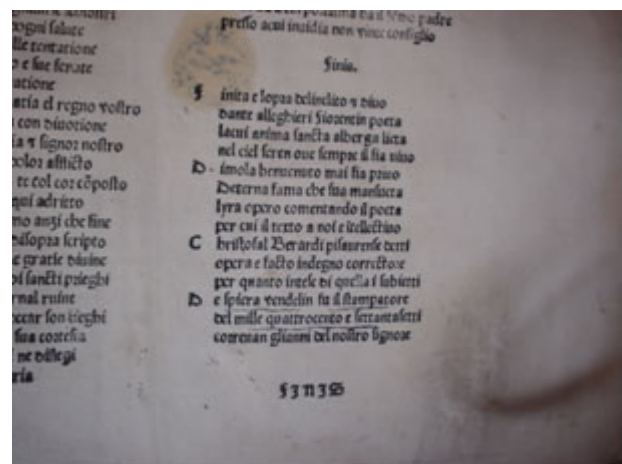 ogni salute
lle tentatione
o e fue ferute
atione
atia el regno vostro
con divotione
ia τ signor nostro
color afflicto
te col cor cōposto
qui adricto
mo anzi che fine
disopra scripto
e gratie divine
di sancti prieghi
rnal ruine
son tieghi
sua cortesia
ne disiegi
ria
padre
presso a cui invidia non vince consiglio
Finis.
F inita e lopra delinclito τ divo
dante alleghieri Fiorentin poeta
lacui anima sancta alberga lieta
nel ciel seren ove sempre il fia vivo
D imola benvenuto mai fia privo
Deterna fama che sua mansueta
lyra opero comentando il poeta
per cui il texto a noi e itellectivo
C hristofal Berardi pisaurense detti
opera e facto indegno correctore
per quanto intese di quella i subietti
D e spiera vendelin fu il stampatore
del mille quattrocento e settantasetti
correvan glianni del nostro signore
FINIS